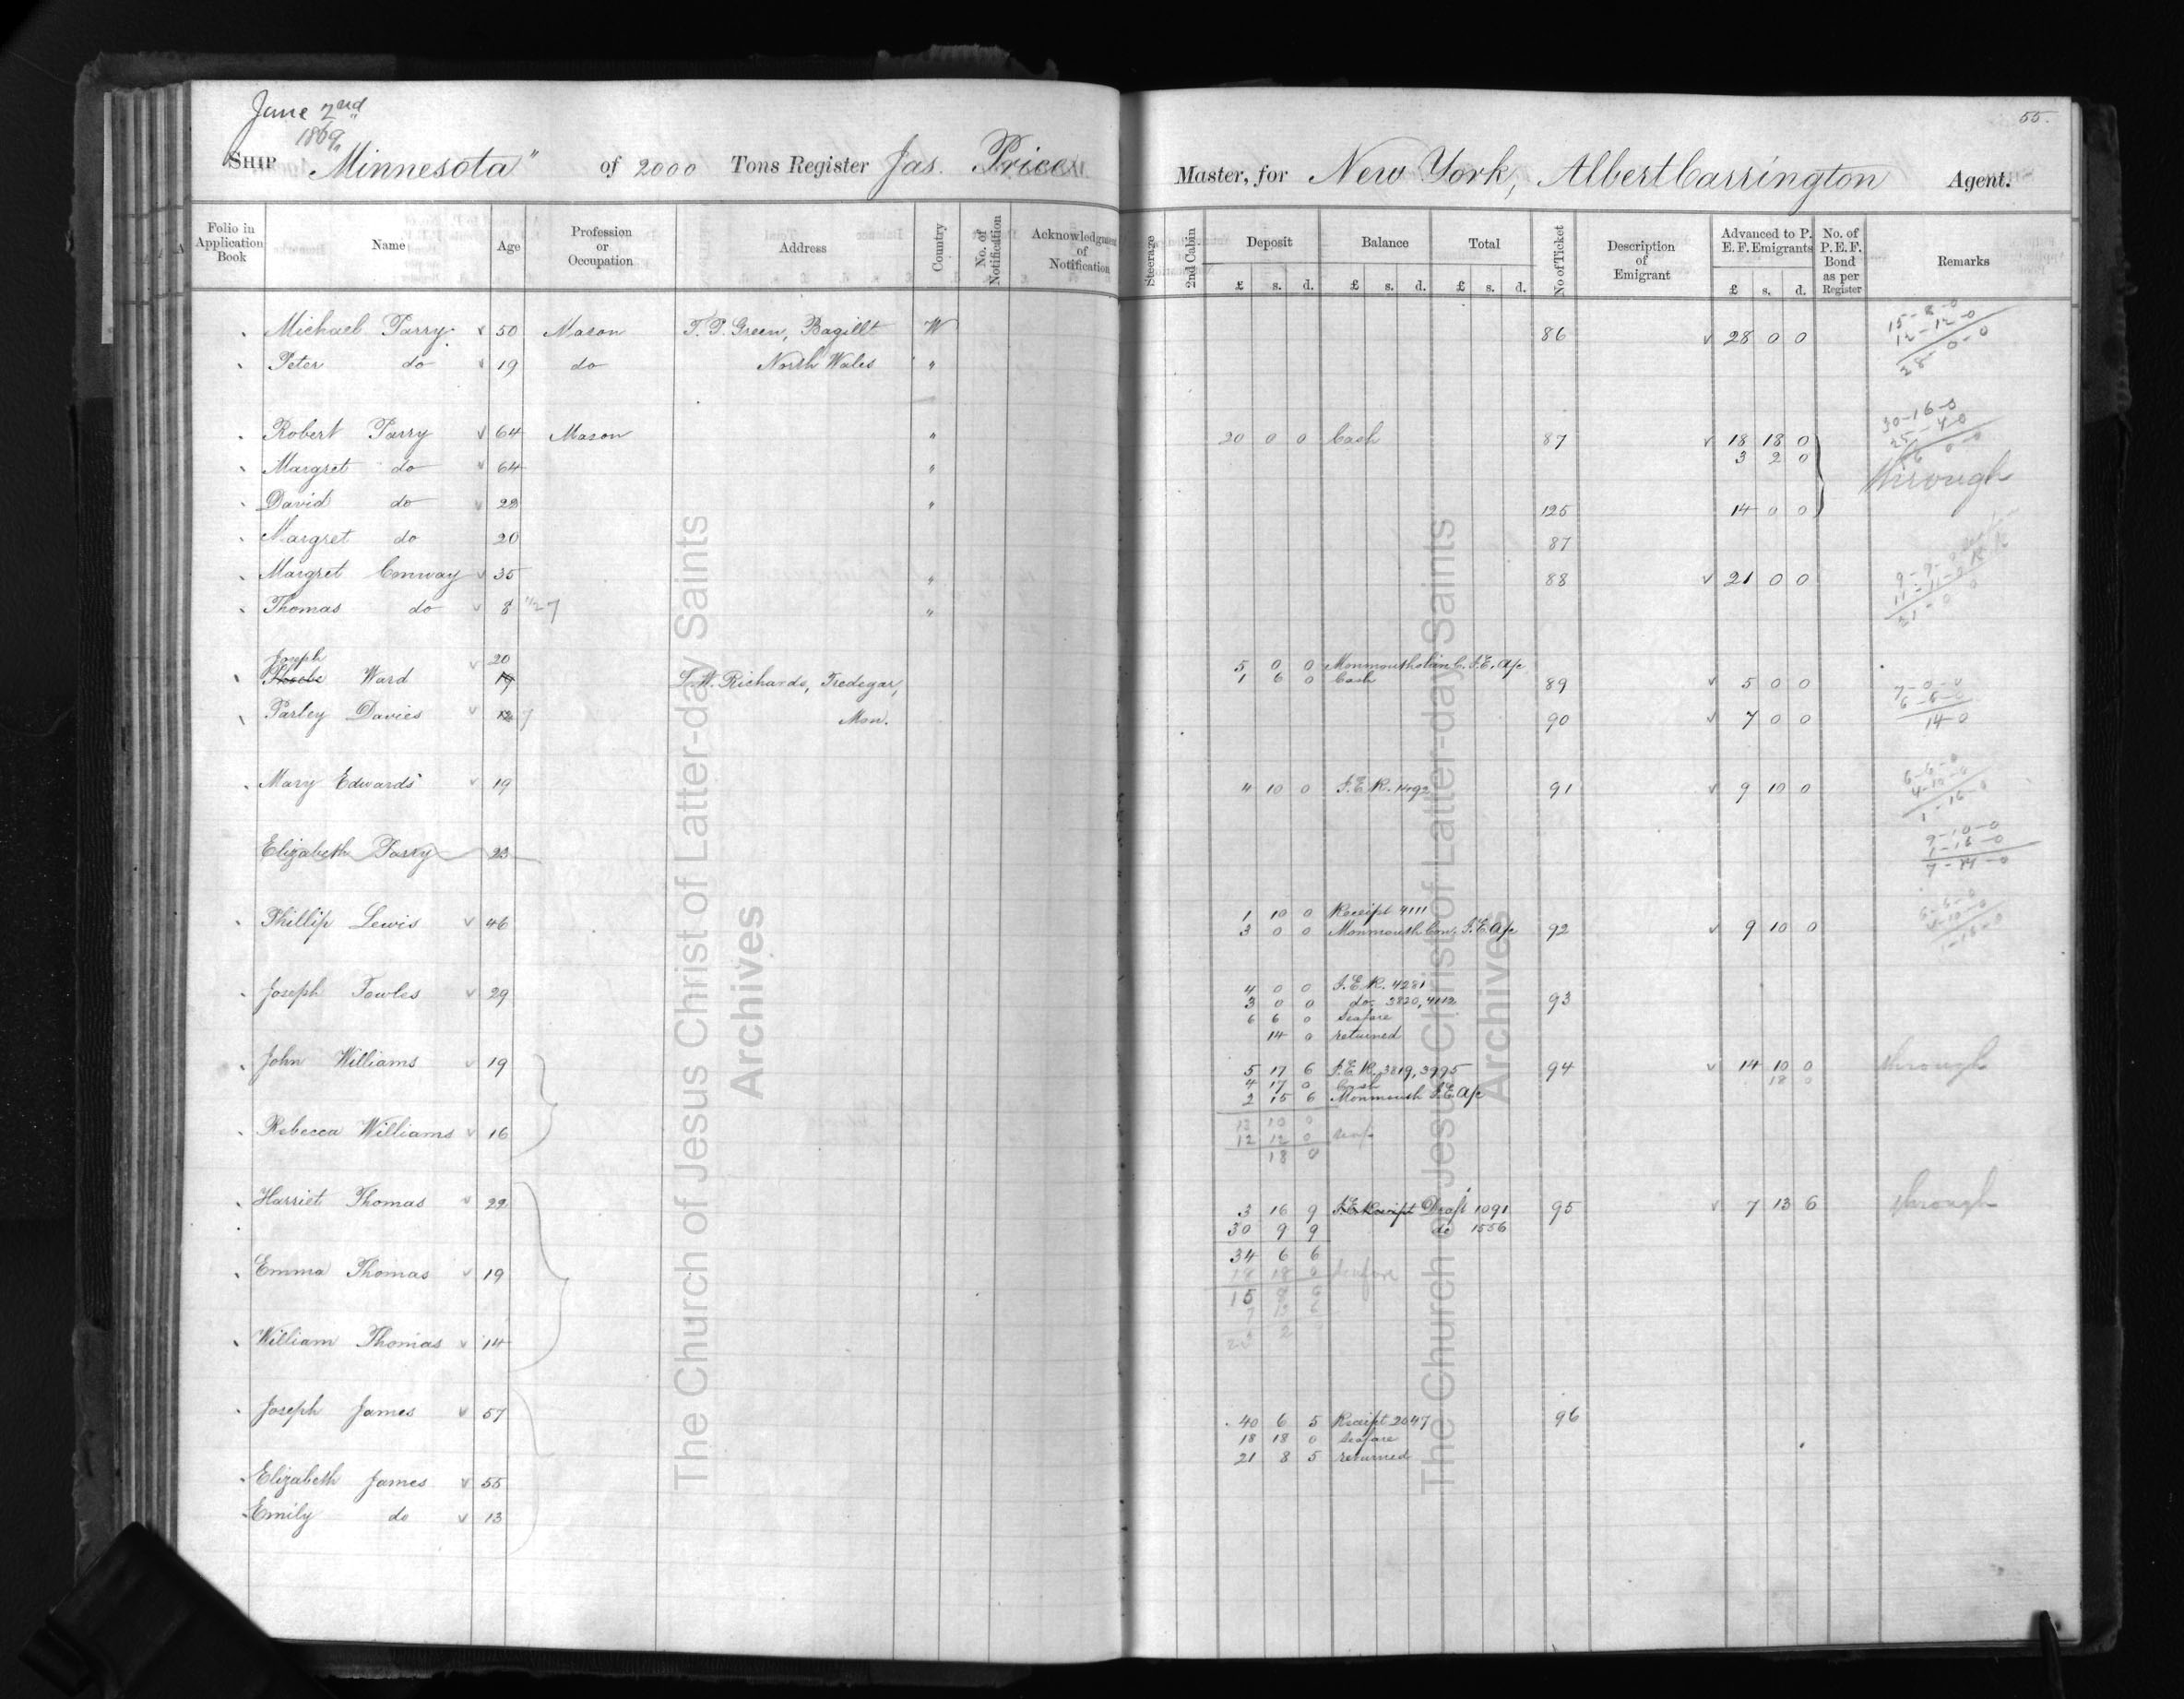 June 2nd
1869
55.
SHIP "Minnesota" of 2000 Tons Register Jas. Price Master, for New York, Albert Carrington Agent.
Folio in Application Book Name Age Profession or Occupation Address Country No. of Notification Acknowledgment of Notification Steerage 2nd Cabin Deposit £ s. d. Balance £ s. d. Total £ s. d. No of Ticket Description of Emigrant Advanced to P. E. F. Emigrants £ s. d. No. of P. E. F. Bond as per Register Remarks
Michael Parry 50 Mason T. P. Green, Bagillt W 86 28 0 0 15-8-0
12-12-0
28-0-0
Peter do 19 do North Wales "
Robert Parry 64 Mason " 20 0 0 Cash 87 18 18 0 30-16-0
3 2 0
Margret do 64 " through
David do 28 " 125 14 0 0
Margret do 20 87
Margret Conway 35 " 88 21 0 0 9-9-0
11-11-0
21-0-0
Thomas do 8 "
Joseph 20 5 0 0 Monmouthshire C. I. E. A/c
Phoebe Ward 19 L. W. Richards, Tredegar, 1 6 0 Cash 89 5 0 0 7-0-0
6-6-0
14-0
Parley Davies 12 Mon. 90 7 0 0
Mary Edwards 19 4 10 0 I. E. R. 1492 91 9 10 0 6-6-0
4-10-0
1-16-0
Elizabeth Parry 23 9-10-0
1-16-0
7-14-0
Phillip Lewis 46 1 10 0 Receipt 4111
3 0 0 Monmouth Con. I. E. A/c 92 9 10 0 6-6-0
4-10-0
1-16-0
Joseph Fowles 29 4 0 0 I. E. R. 4281
3 0 0 do 3820, 4112 93
6 6 0 Seafare
14 0 returned
John Williams 19 5 17 6 I. E. R. 3819, 3995 94 14 10 0 through
18 0
4 17 0 Cash
2 15 6 Monmouth I. E. A/c
13 10 0
Rebecca Williams 16 12 12 0
18 0
Harriet Thomas 22 3 16 9 I. E. Receipt Draft 1091 95 7 13 6 through
30 9 9 do 1556
34 6 6
Emma Thomas 19 18 18 0 Seafare
15 8 6
7 13 6
William Thomas 14
Joseph James 57 40 6 5 Receipt 2047 96
18 18 0 Seafare
21 8 5 returned
Elizabeth James 55
Emily do 13
The Church of Jesus Christ of Latter-day Saints
Archives
The Church of Jesus Christ of Latter-day Saints
Archives